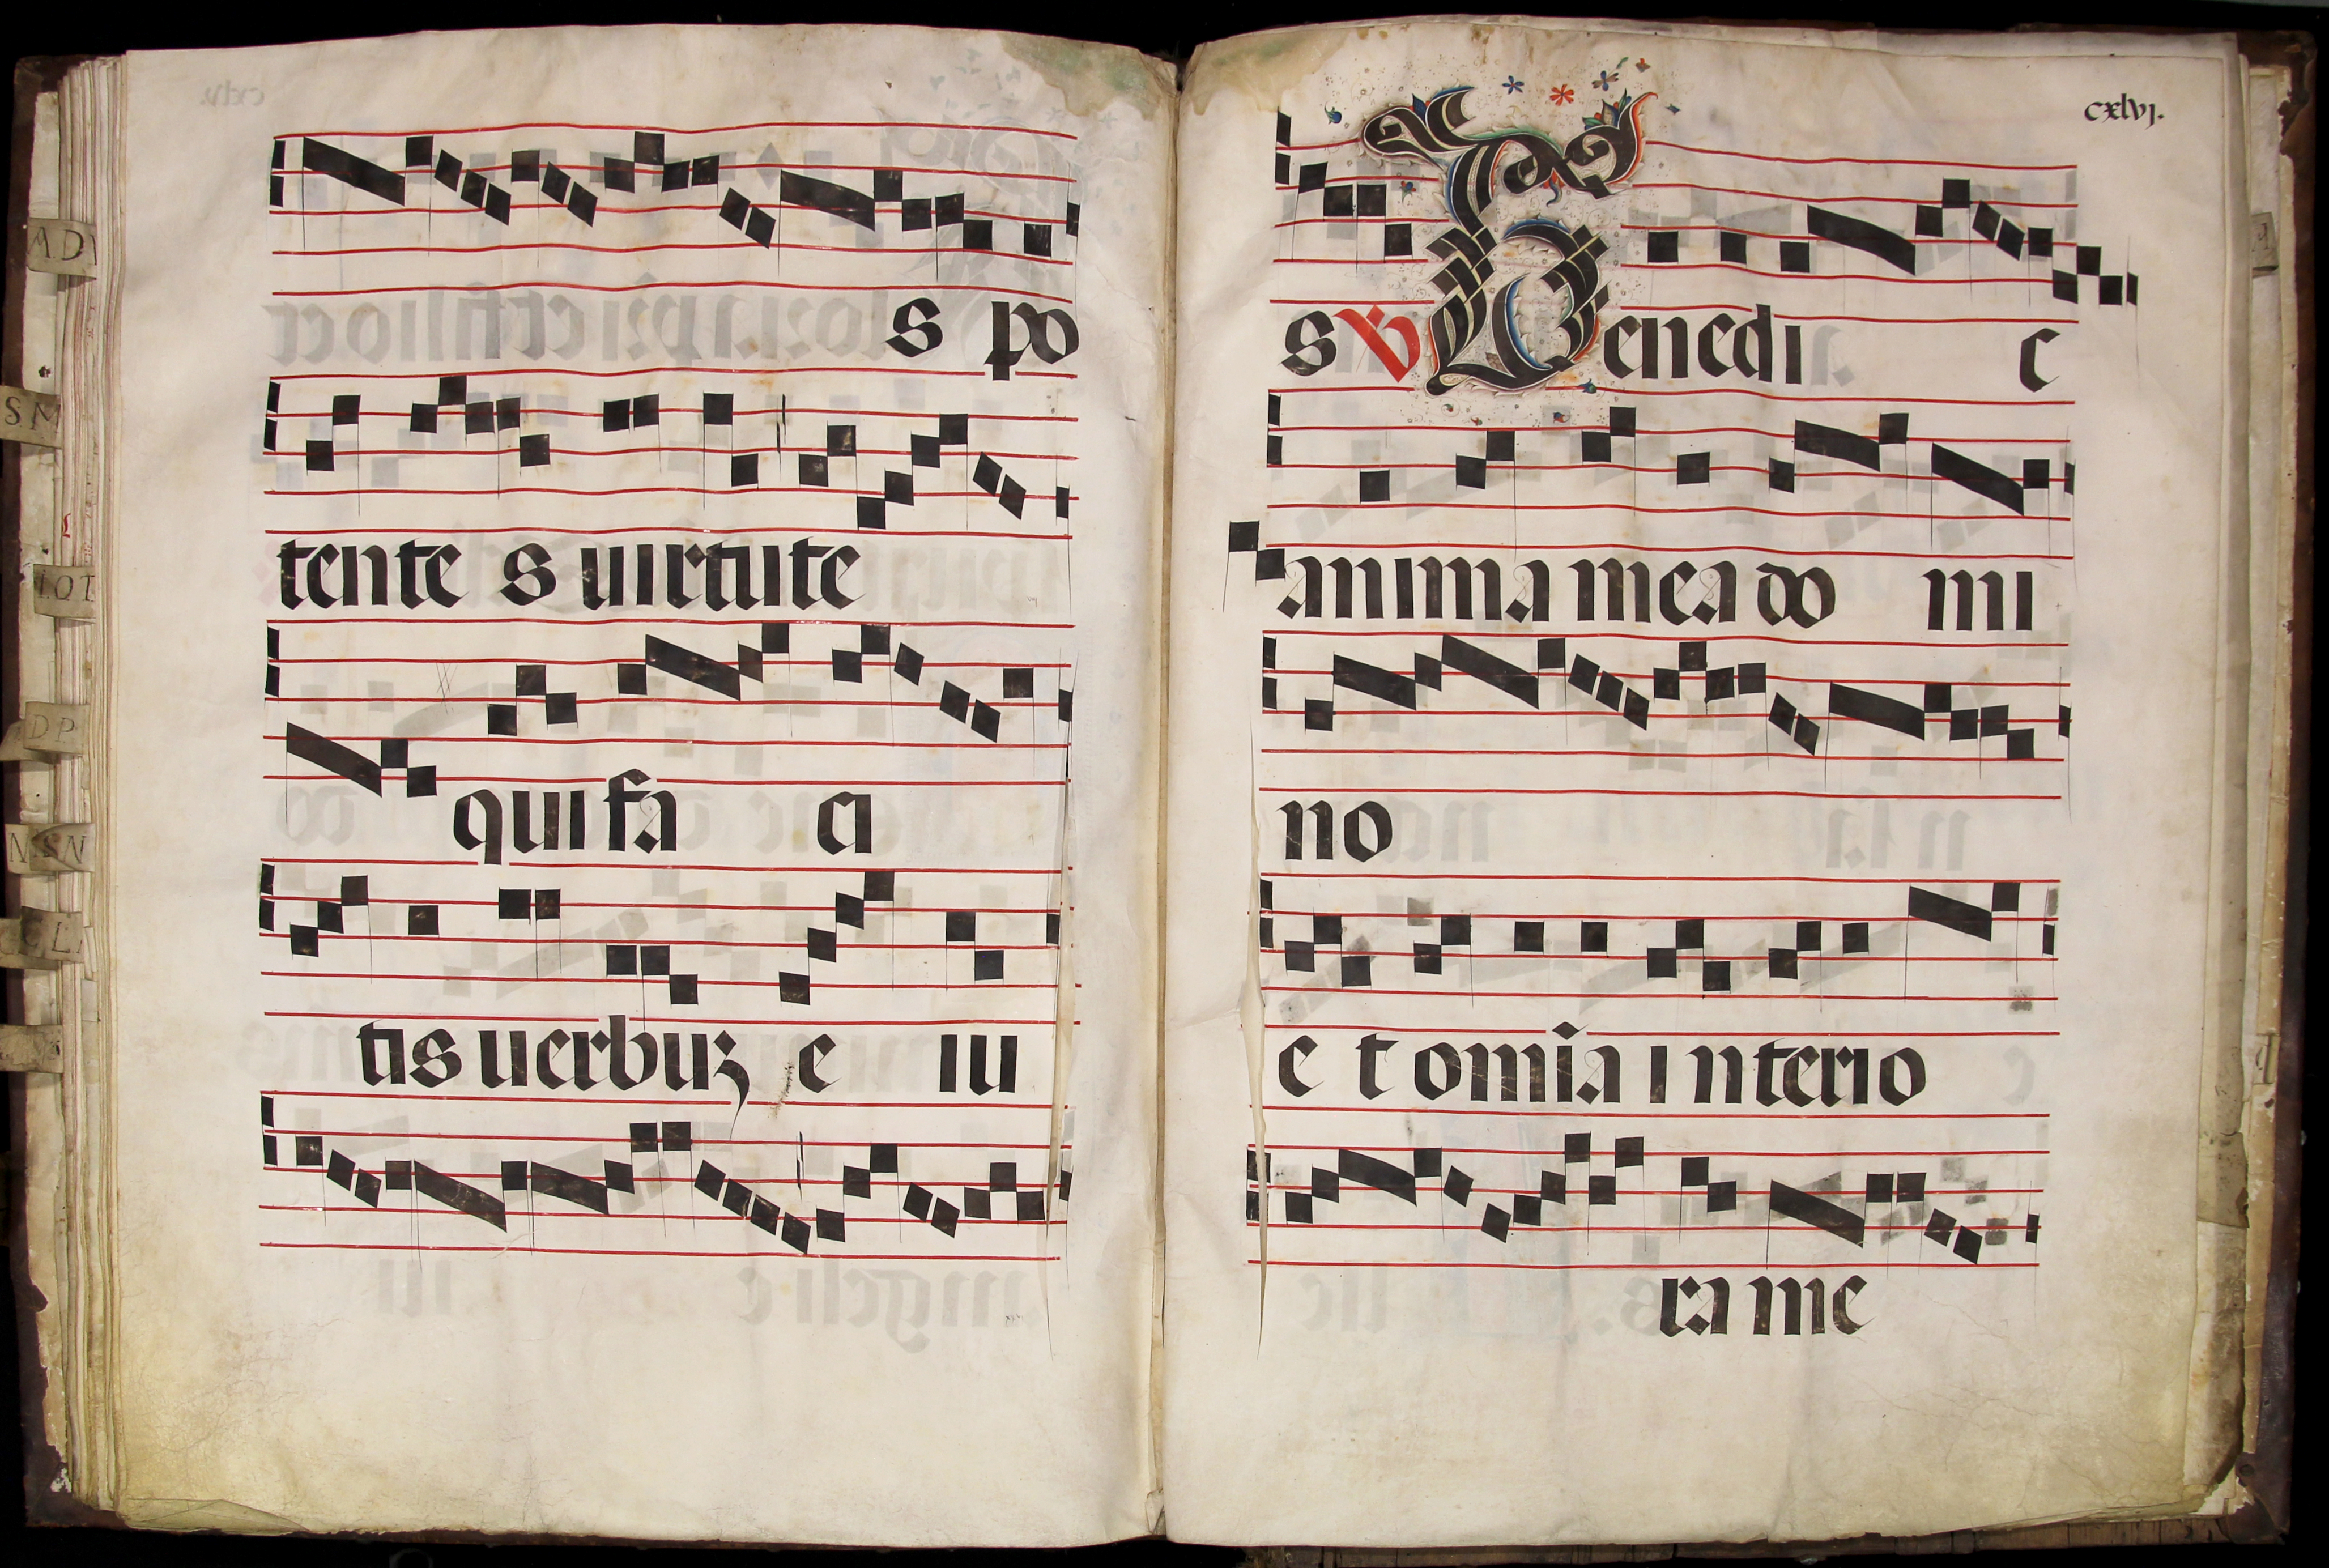 s po
tente s uirtute
qui fa ci
tis uerbuʒ e iu
cxlvj.
s ℣ Benedi c
anima mea do mi
no
e t omĩa i nterio
ra me
AD
SM
IOT
DP